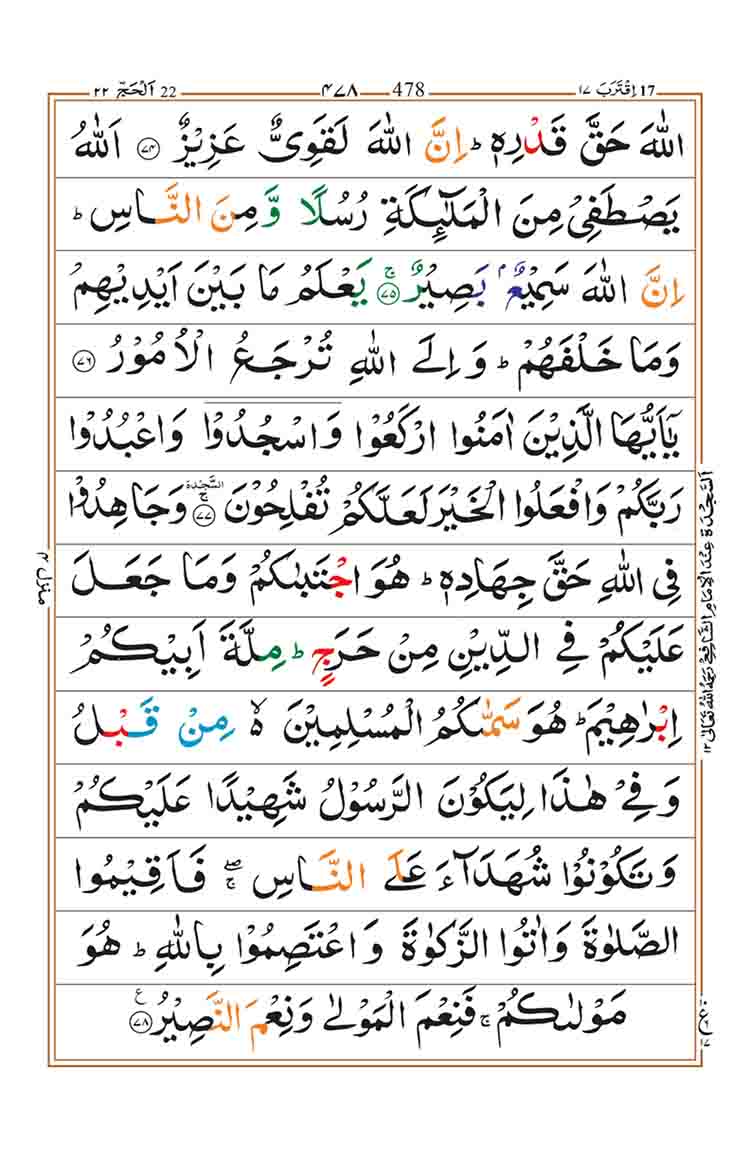 اِقْتَرَبَ ١٧ 17
٤٧٨ 478
٢٢ اَلْحَجّ 22
اللّٰهَ حَقَّ قَدْرِهٖ ؕ اِنَّ اللّٰهَ لَقَوِیٌّ عَزِیْزٌ ﴿۷۴﴾ اَللّٰهُ
یَصْطَفِیْ مِنَ الْمَلٰٓئِكَةِ رُسُلًا وَّمِنَ النَّاسِ ؕ
اِنَّ اللّٰهَ سَمِیْعٌۢ بَصِیْرٌ ۚ﴿۷۵﴾ یَعْلَمُ مَا بَیْنَ اَیْدِیْهِمْ
وَمَا خَلْفَهُمْ ؕ وَاِلَی اللّٰهِ تُرْجَعُ الْاُمُوْرُ ﴿۷۶﴾
یٰۤاَیُّهَا الَّذِیْنَ اٰمَنُوا ارْكَعُوْا وَاسْجُدُوْا وَاعْبُدُوْا
رَبَّكُمْ وَافْعَلُوا الْخَیْرَ لَعَلَّكُمْ تُفْلِحُوْنَ ۚ﴿۷۷﴾ السَّجْدَة وَجَاهِدُوْا
فِی اللّٰهِ حَقَّ جِهَادِهٖ ؕ هُوَ اجْتَبٰىكُمْ وَمَا جَعَلَ
عَلَیْكُمْ فِی الدِّیْنِ مِنْ حَرَجٍ ؕ مِلَّةَ اَبِیْكُمْ
اِبْرٰهِیْمَ ؕ هُوَ سَمّٰىكُمُ الْمُسْلِمِیْنَ ۙ۬ مِنْ قَبْلُ
وَفِیْ هٰذَا لِیَكُوْنَ الرَّسُوْلُ شَهِیْدًا عَلَیْكُمْ
وَتَكُوْنُوْا شُهَدَآءَ عَلَی النَّاسِ ۖۚ فَاَقِیْمُوا
الصَّلٰوةَ وَاٰتُوا الزَّكٰوةَ وَاعْتَصِمُوْا بِاللّٰهِ ؕ هُوَ
مَوْلٰىكُمْ ۚ فَنِعْمَ الْمَوْلٰی وَنِعْمَ النَّصِیْرُ ﴿۷۸﴾ ع
اَلسَّجْدَة عِنْدَ الْاِمَامِ الشَّافِعِیِّ رَحِمَهُ اللّٰهُ تَعَالٰی ١٢
منزل ۴
ع ١٧